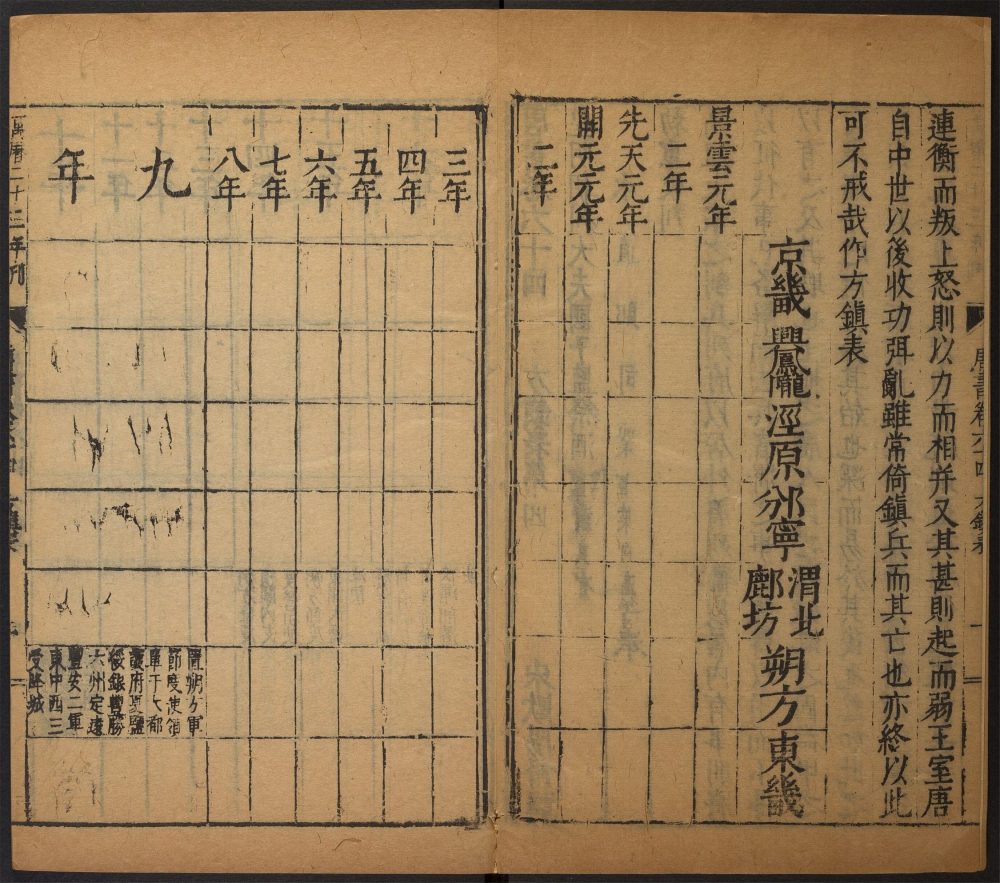 連衡而叛上怒則以力而相并又其甚則起而弱王室唐
自中世以後收功弭亂雖常倚鎮兵而其亡也亦終以此
可不戒哉作方鎮表
京畿 興鳳隴 涇原 邠寧 渭北鄜坊 朔方 東畿
景雲元年
二年
先天元年
開元元年
二年
三年
四年
五年
六年
七年
八年
九
年
置朔方軍
節度使領
單于大都
護府夏鹽
綏銀豐勝
六州定遠
豐安二軍
東中西三
受降城
唐書卷六十四 方鎮表
萬曆二十三年刊